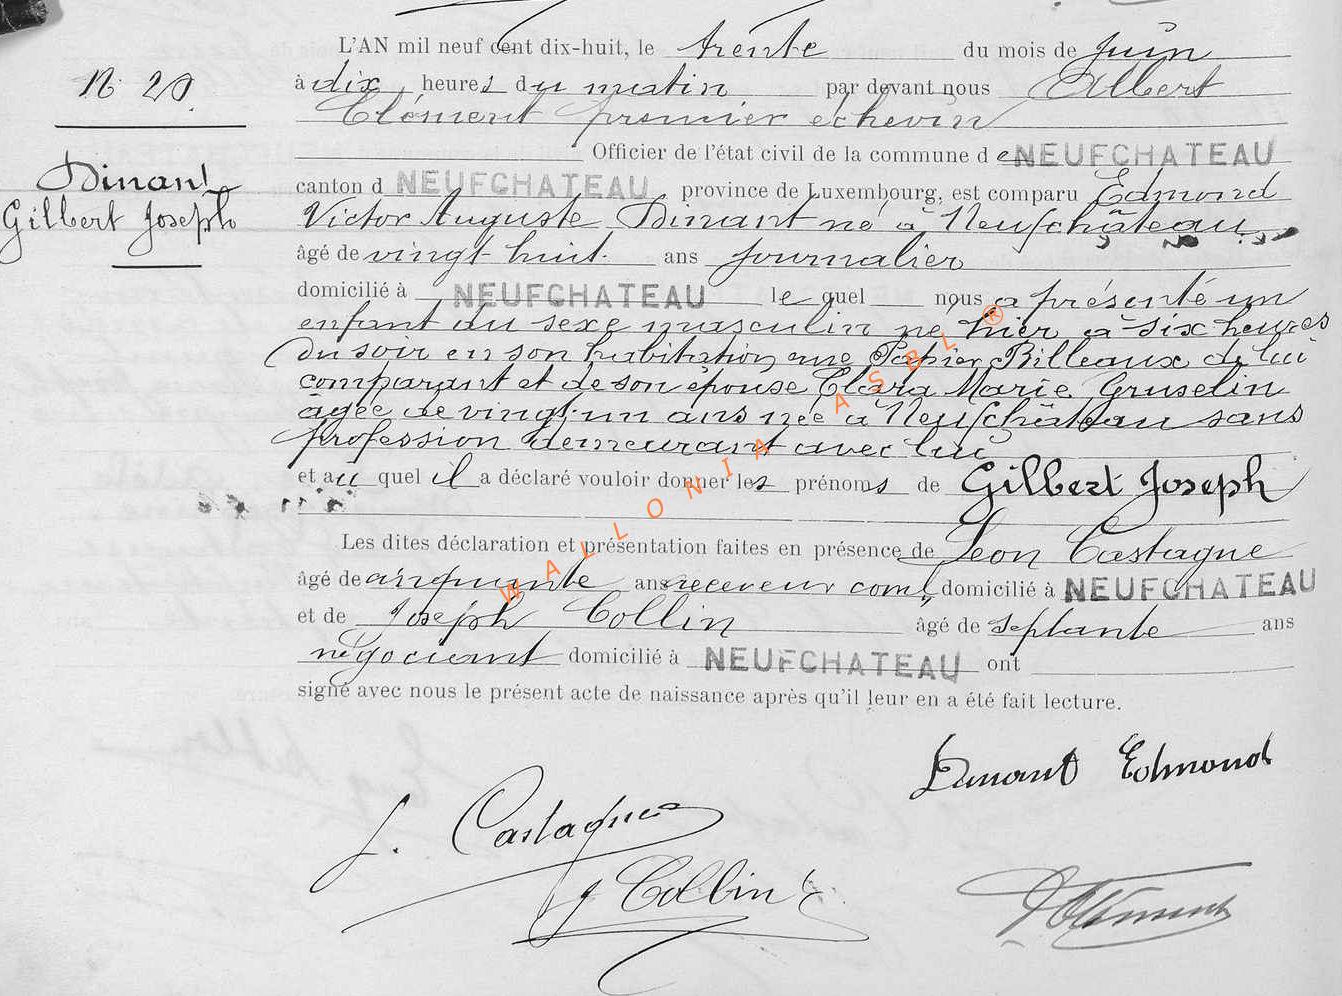 L'AN mil neuf cent dix-huit, le trente du mois de juin
N. 20.
à dix heures du matin par devant nous Albert
Clément premier echevin
Officier de l'état civil de la commune de NEUFCHATEAU
Dinant
Gilbert Joseph
canton d NEUFCHATEAU province de Luxembourg, est comparu Edmond
Victor Auguste Dinant né à Neufchâteau
âgé de vingt huit ans journalier
domicilié à NEUFCHATEAU le quel nous a présenté un
enfant du sexe masculin né hier à six heures
du soir en son habitation rue Papier Billeaux de lui
comparant et de son épouse Clara Marie Gruselin
âgée de vingt un ans née à Neufchâteau sans
profession demeurant avec lui
et au quel il a déclaré vouloir donner les prénoms de Gilbert Joseph
Les dites déclaration et présentation faites en présence de Leon Castagne
âgé de cinquante ans receveur coml domicilié à NEUFCHATEAU
et de Joseph Collin âgé de septante ans
négociant domicilié à NEUFCHATEAU ont
signé avec nous le présent acte de naissance après qu'il leur en a été fait lecture.
Dinant Edmond
Castagne
J Collin
WALLONIA ASBL ®